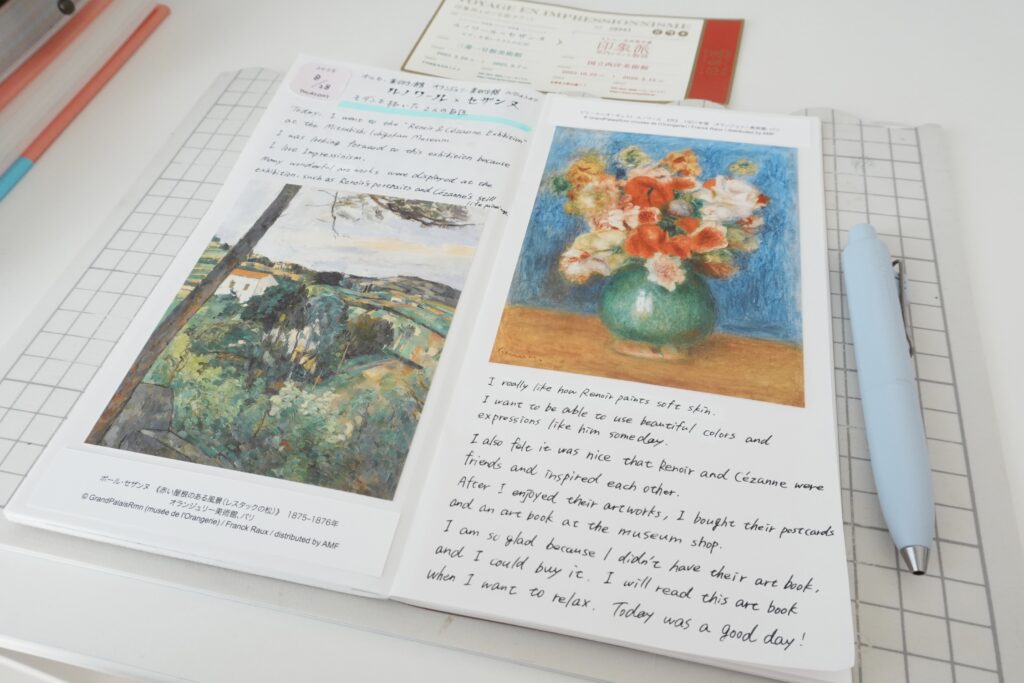 VOYAGE EN IMPRESSIONNISME
ルノワール×セザンヌ
三菱一号館美術館
印象派
国立西洋美術館
8/28
THURSDAY
オルセー美術館 オランジュリー美術館
ルノワール × セザンヌ
モダンを拓いた2人の巨匠
Today, I went to the "Renoir & Cézanne Exhibition"
at the Mitsubishi Ichigokan Museum.
I was looking forward to this exhibition because
I love Impressinism.
Many wonderful art works were displayed at the
exhibition, such as Renoir's portraits and Cézanne's still
life paintings.
ポール・セザンヌ 《赤い屋根のある風景(レスタックの松)》 1875-1876年
オランジュリー美術館、パリ
© GrandPalaisRmn (musée de l'Orangerie) / Franck Raux / distributed by AMF
オランジュリー美術館、パリ
© GrandPalaisRmn (musée de l'Orangerie) / Franck Raux / distributed by AMF
Renoir.
I really like how Renoir paints soft skin.
I want to be able to use beautiful colors and
expressions like him someday.
I also felt it was nice that Renoir and Cézanne were
friends and inspired each other.
After I enjoyed their artworks, I bought their postcards
and an art book at the museum shop.
I am so glad because I didn't have their art book,
and I could buy it. I will read this art book
when I want to relax. Today was a good day!